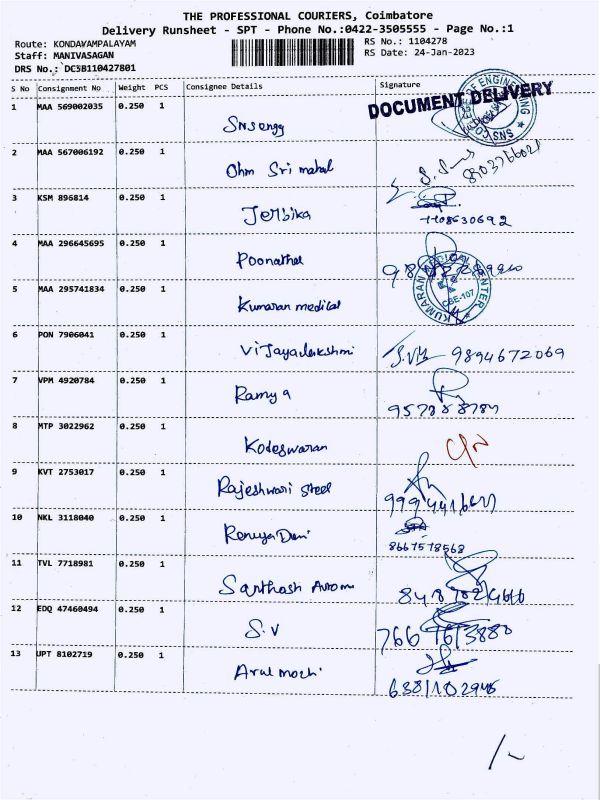 THE PROFESSIONAL COURIERS, Coimbatore
Delivery Runsheet - SPT - Phone No.:0422-3505555 - Page No.:1
Route: KONDAYAMPALAYAM
RS No.: 1104278
Staff: MANIVASAGAN
RS Date: 24-Jan-2023
DRS No.: DCSB110427801
S No Consignment No Weight PCS Consignee Details Signature
DOCUMENT DELIVERY
COLLEGE OF ENGINEERING SNS
1 MAA 569002035 0.250 1
Snsengg
2 MAA 567006192 0.250 1
Ohm Sri mahal
3 KSM 896814 0.250 1
Jerbika
4 MAA 296645695 0.250 1
Poonathal
5 MAA 295741834 0.250 1
Kumaran medical
KUMARAN MEDICAL CENTER
CBE-107
6 PON 7906041 0.250 1
Vijayalakshmi 9894672069
7 VPM 4920784 0.250 1
Ramya
8 MTP 3022962 0.250 1
Kodeswaran
9 KVT 2753017 0.250 1
Rajeshwari Steel
10 NKL 3118040 0.250 1
8667578568
11 TVL 7718981 0.250 1
12 EDQ 47460494 0.250 1
S.V
13 UPT 8102719 0.250 1
Arul mozhi
6381102945